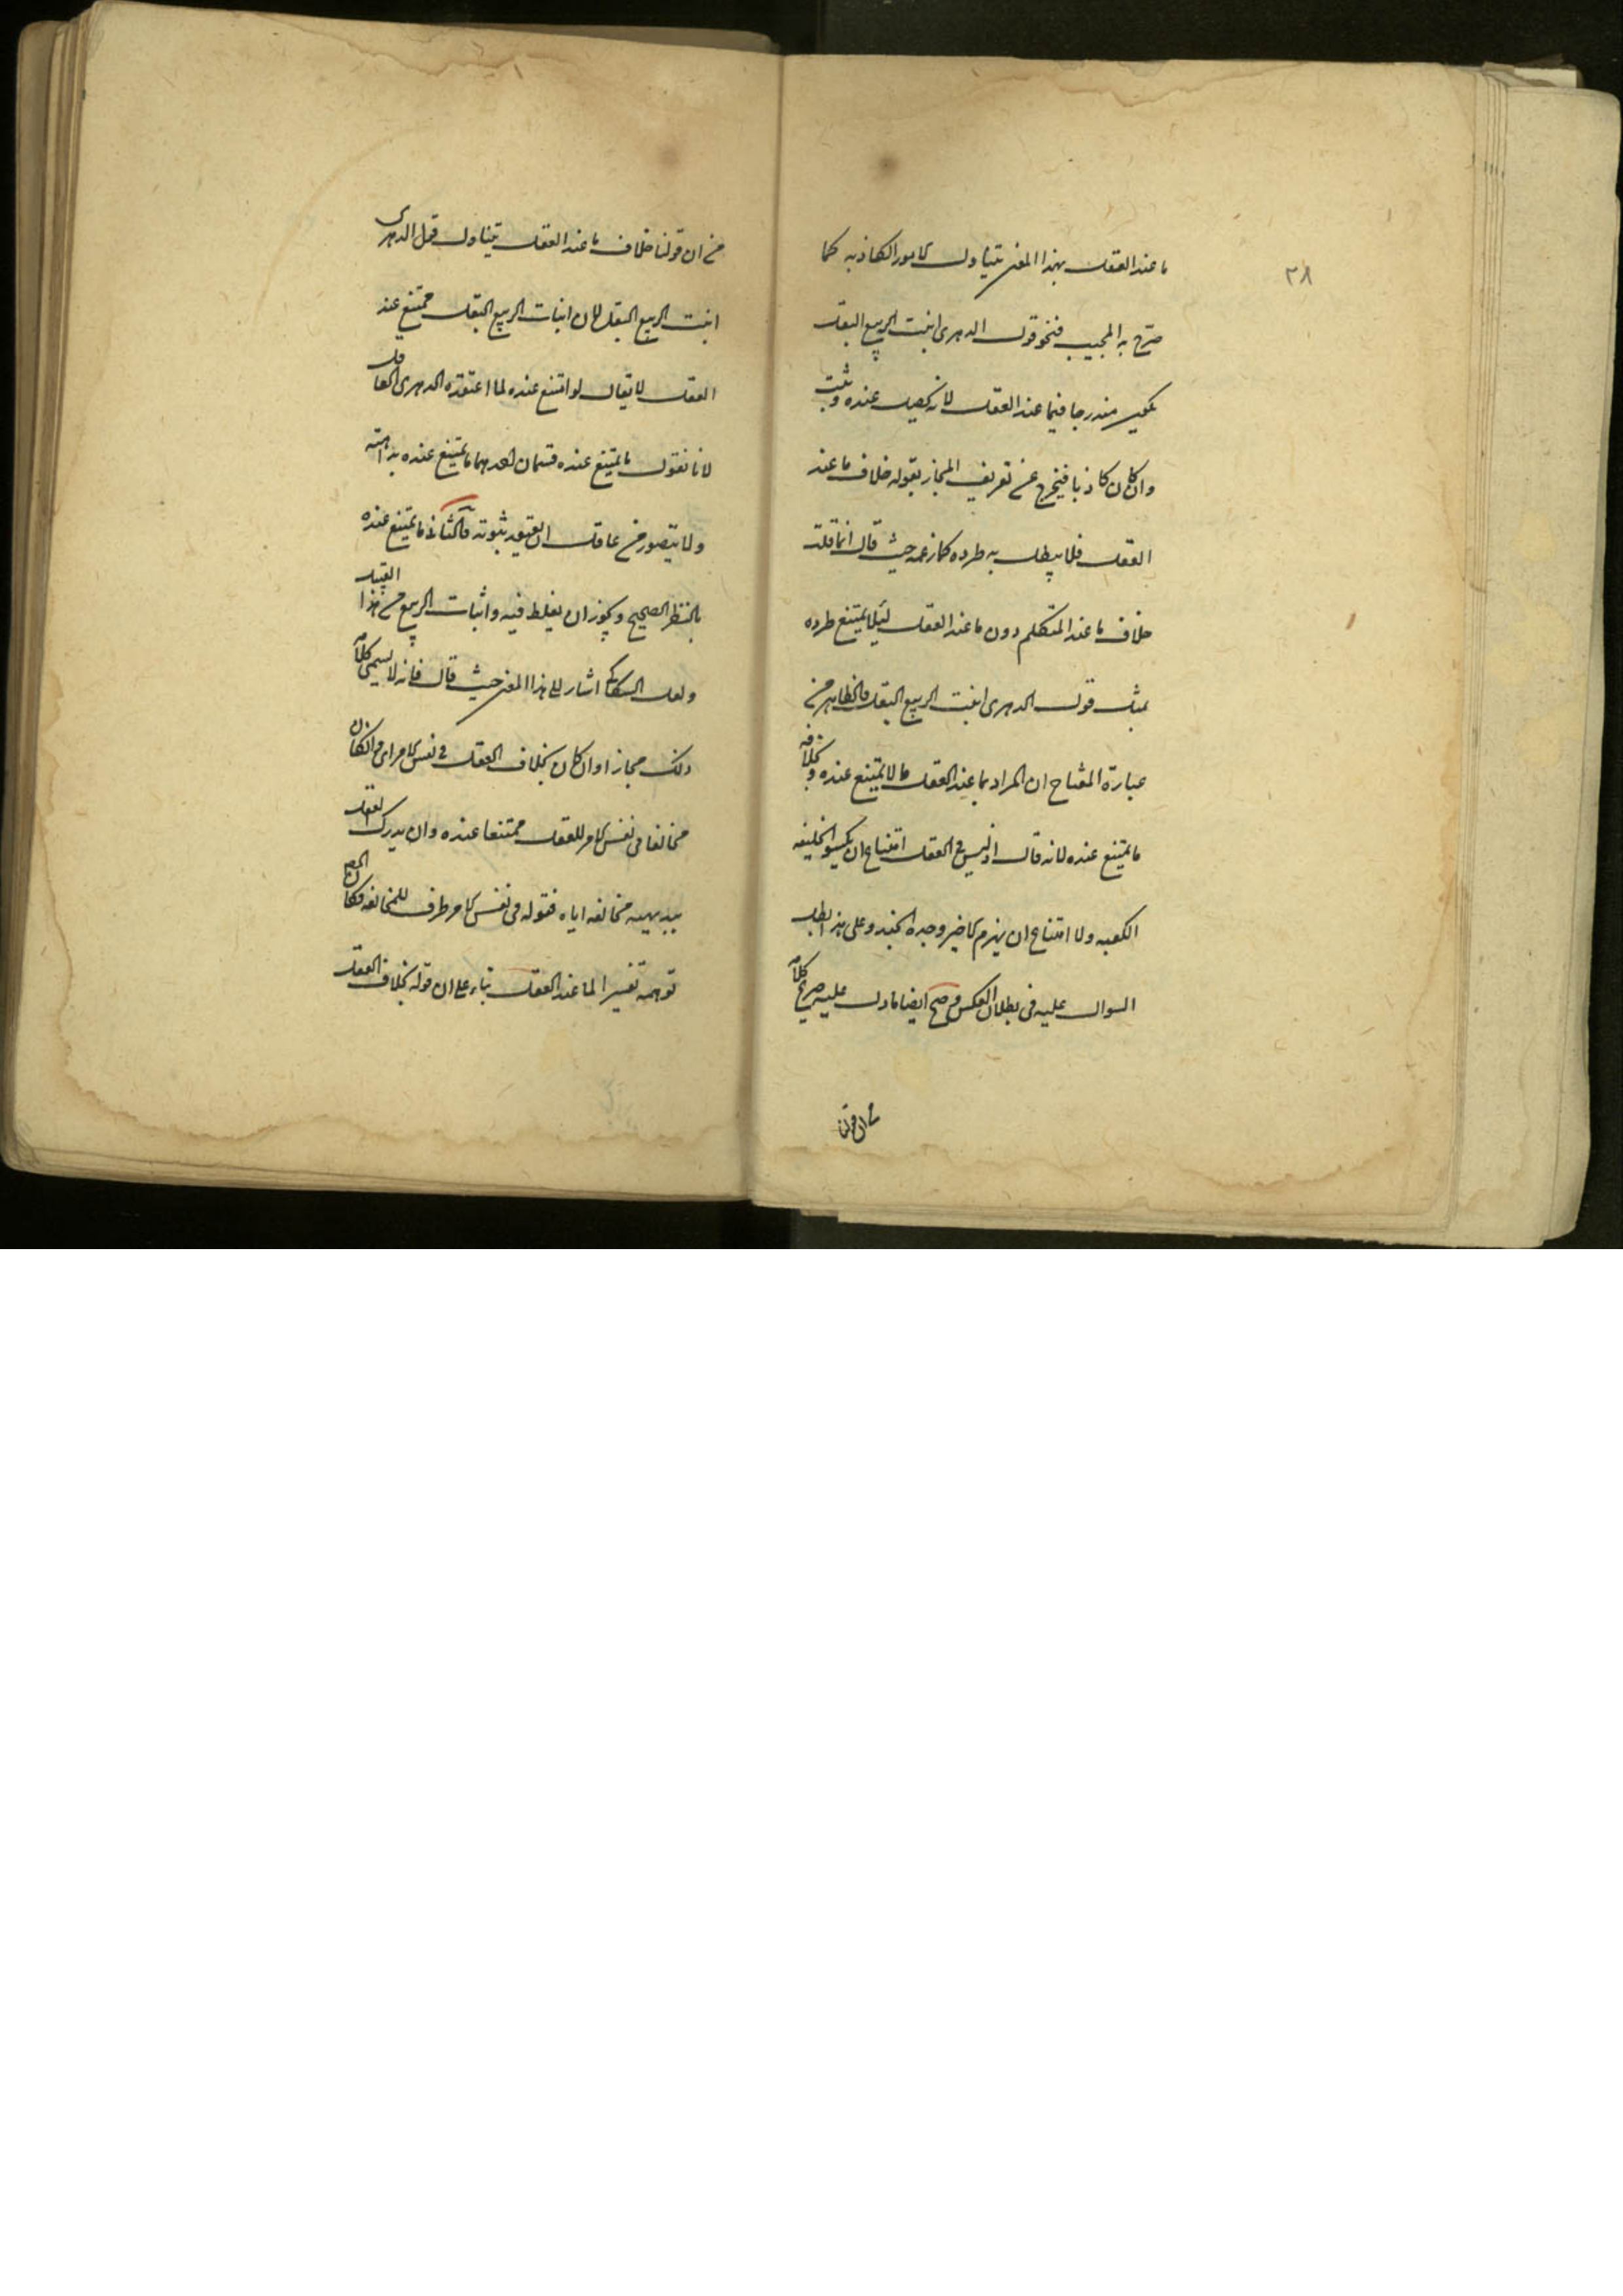 ٣٨
ما عند العقل بهذا المعنى يتناول الامور الكاذبه كما
صرح به المجيب فنحو قول الدهرى انبت الربيع البقل
يكون مندرجا فيما عند العقل لانه يحصل عنده ويثبت
وان كان كاذبا فيخرج عن تعريف المجاز بقوله خلاف ما عند
العقل فلا يبطل به طرده كما زعمه حيث قال انما قلت
خلاف ما عند المتكلم دون ما عند العقل لئلا يمتنع طرده
بمثل قول الدهرى انبت الربيع البقل فالظاهر من
عبارة المفتاح ان المراد بما عند العقل ما لا يمتنع عنده وبخلافه
ما يمتنع عنده لانه قال اذ ليس فى العقل امتناع ان يكسو الخليفه
الكعبه ولا امتناع ان يهزم الامير وحده الجند وعلى هذا بطل
السوال عليه فى بطلان العكس وصح ايضا ما دل عليه صريح كلامه
من ان قولنا
من ان قولنا خلاف ما عند العقل يتناول قول الدهرى
انبت الربيع البقل لان انبات الربيع البقل ممتنع عند
العقل لا يقال لو امتنع عنده لما اعتقده الدهرى العاقل
لانا نقول ما يمتنع عنده قسمان احدهما ما يمتنع عنده بداهته
ولا يتصور من عاقل ان يعتقد ثبوته والثانى ما يمتنع عنده
بالنظر الصحيح ويجوز ان يغلط فيه واثبات الربيع من هذا القبيل
ولعل السكاكى اشار الى هذا المعنى حيث قال فانه لا يسمى كلامه
ذلك مجازا وان كان بخلاف العقل فى نفس الامر اى وان كان
مخالفا فى نفس الامر للعقل ممتنعا عنده وان يدرك العقل
ببديهيه مخالفه اياه فقوله فى نفس الامر ظرف للمخالفه فكان
توهمه تفسيرا لما عند العقل بناء على ان قوله بخلاف العقل